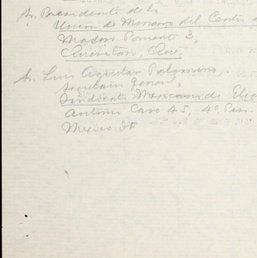 Sr. Presidente de la
Union de Mineros del Centro
Madero Poniente 3,
Sr. Luis Aguilar Palomino,
Secretario General,
Sindicato Mexicano de Elec
Antonio Caso 45, 4º Piso
Mexico DF